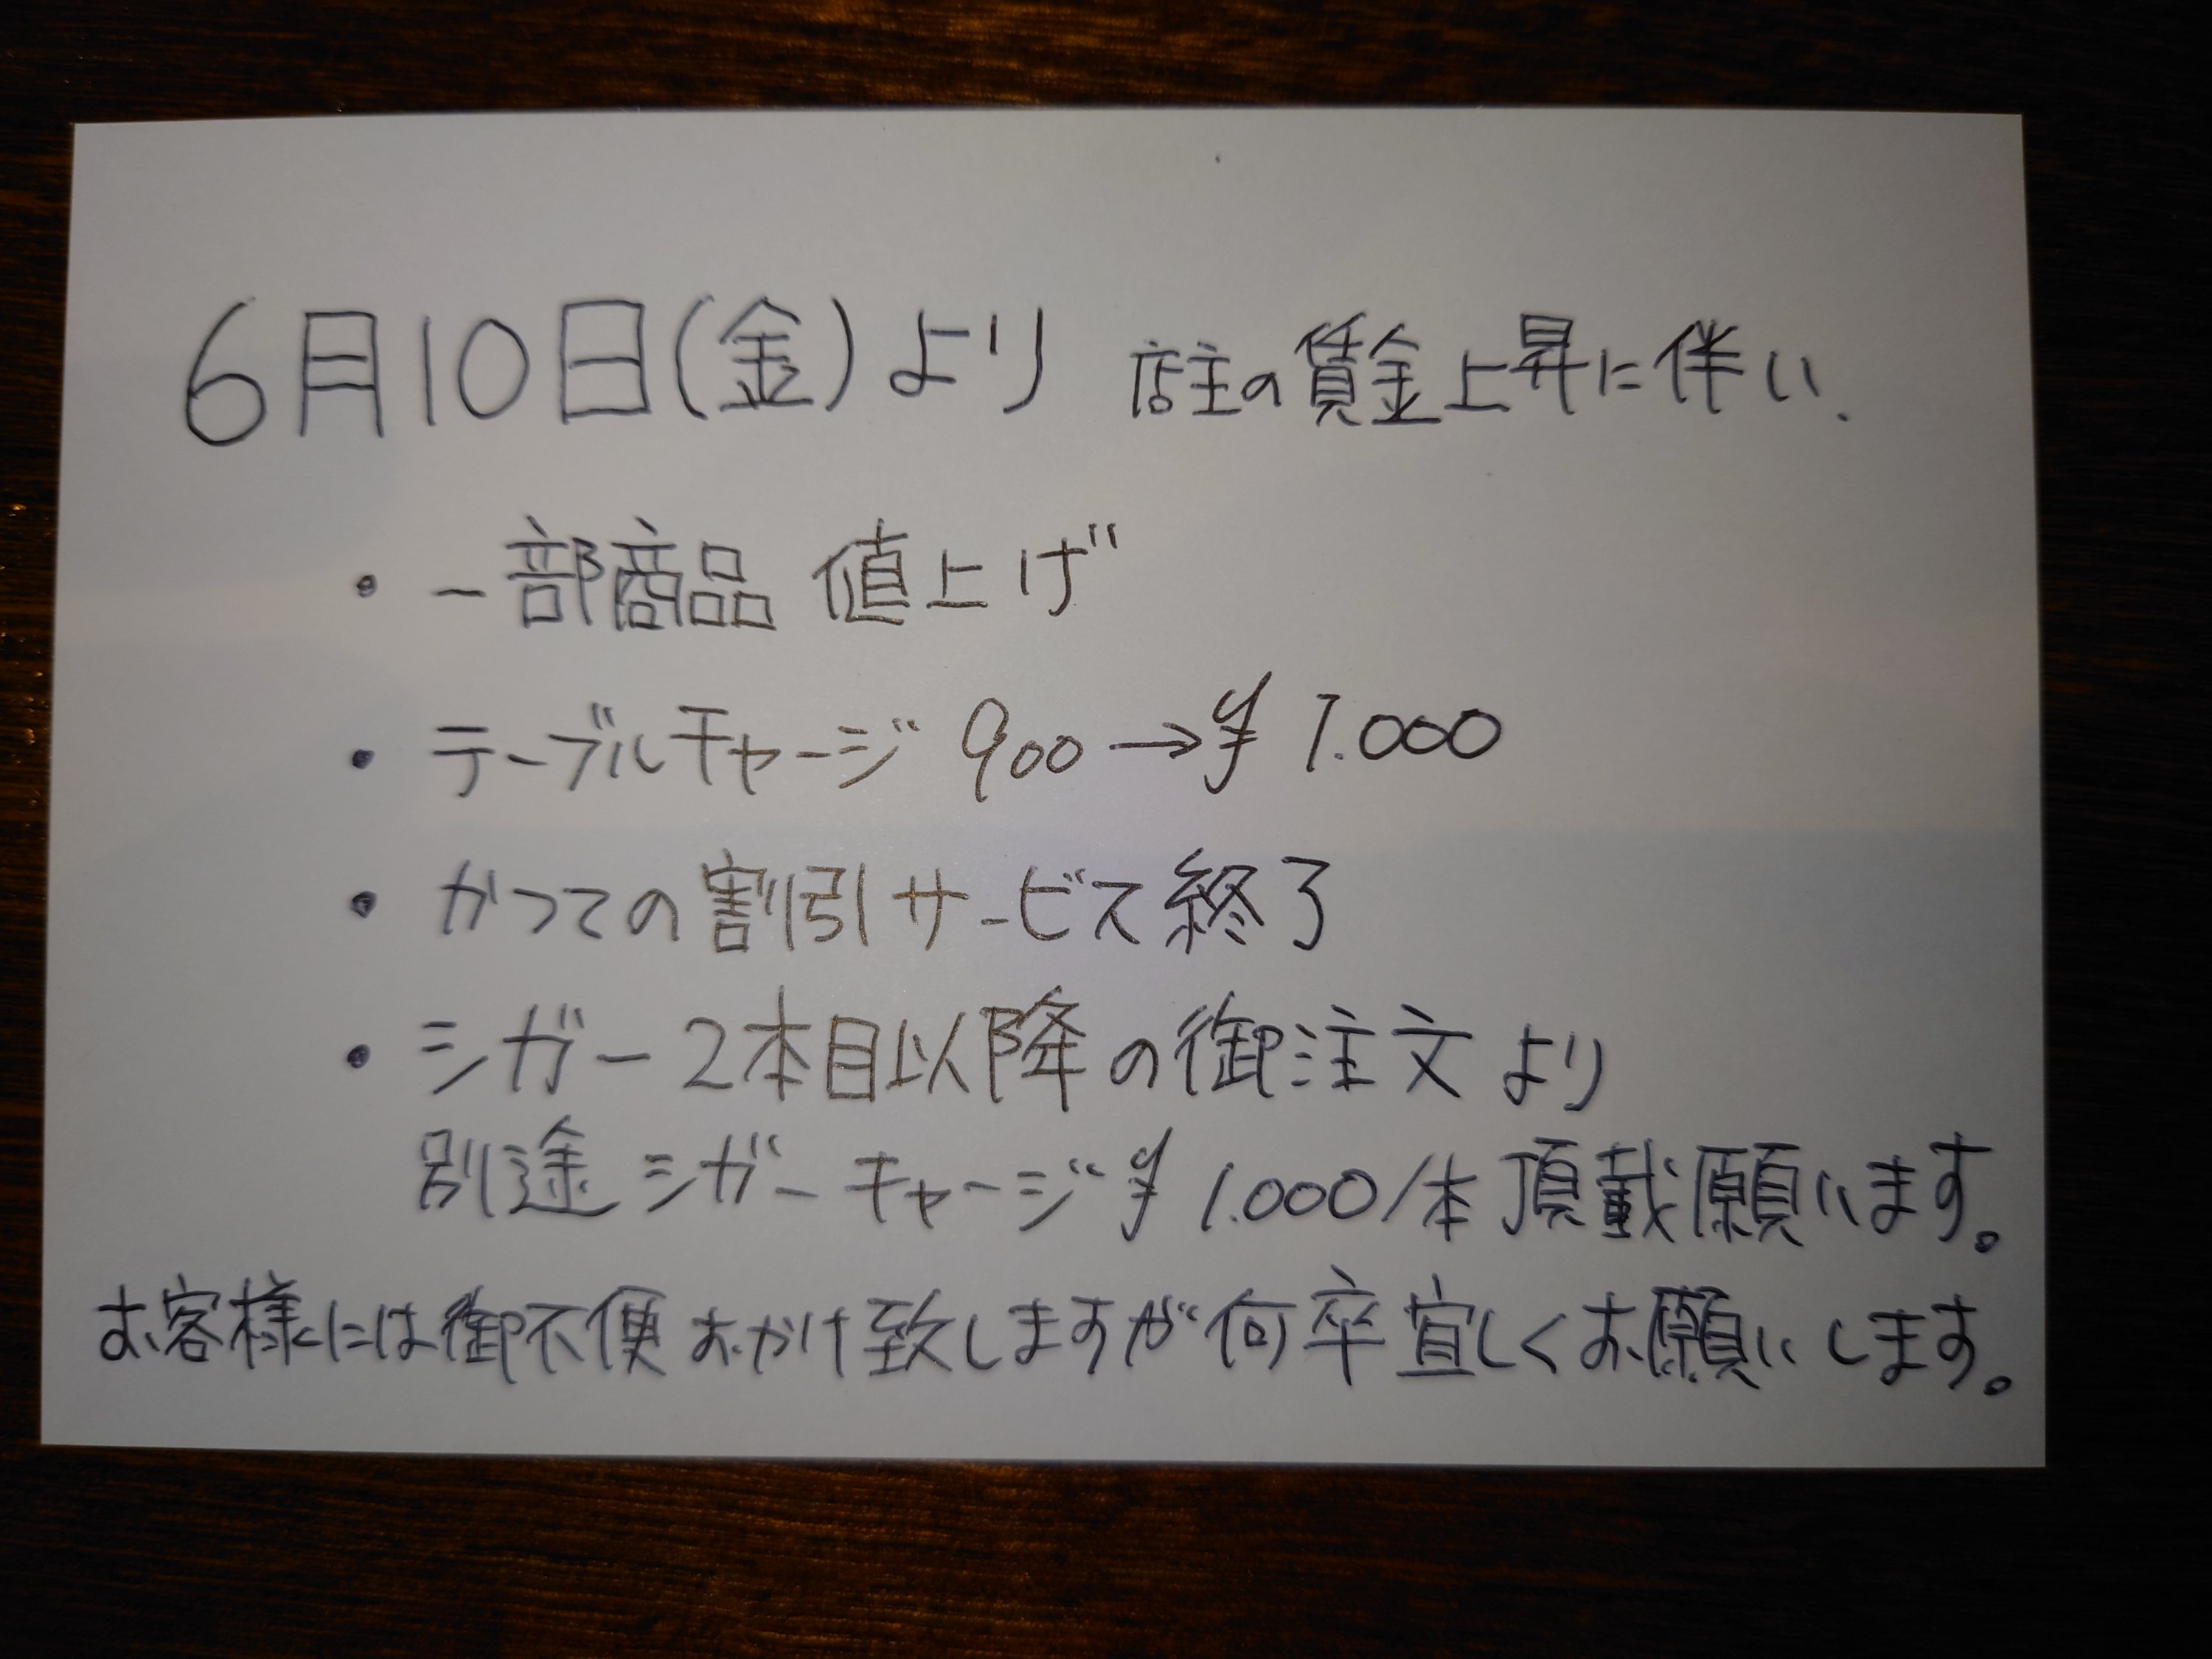 6月10日(金)より 店主の賃金上昇に伴い、
・一部商品 値上げ
・テーブルチャージ 900→¥1.000
・かつての割引サービス終了
・シガー2本目以降の御注文より
別途シガーチャージ¥1.000/本頂戴願います。
お客様には御不便おかけ致しますが何卒宜しくお願いします。